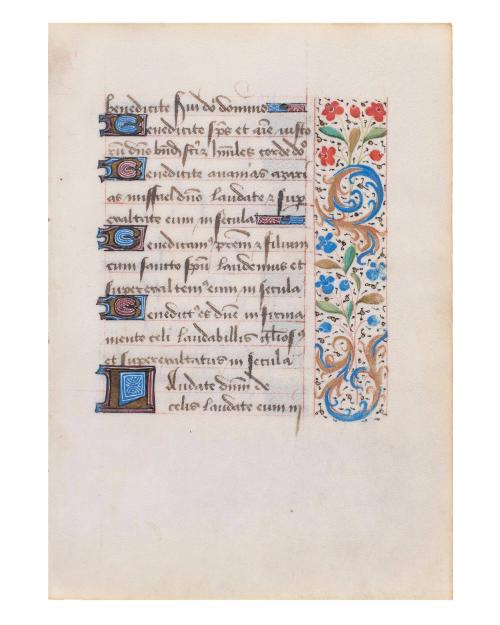 benedicite s̄ui dōi domino
Benedicite sp̄s et aīe iusto
rū dn̄o bn̄d stīz h̄miles corde dō
Benedicite ananias azari
as missael dn̄o laudate z sup
exaltate eum in secula
Benedicamꝰ prēm z filium
cum sancto spūi laudemus et
superexaltemꝰ eum in secula
Benedict es dn̄e in firma
mento celi laudabillis gl̄iosꝰ
et superexaltatus in secula
Laudate dn̄m de
celis laudate eum in